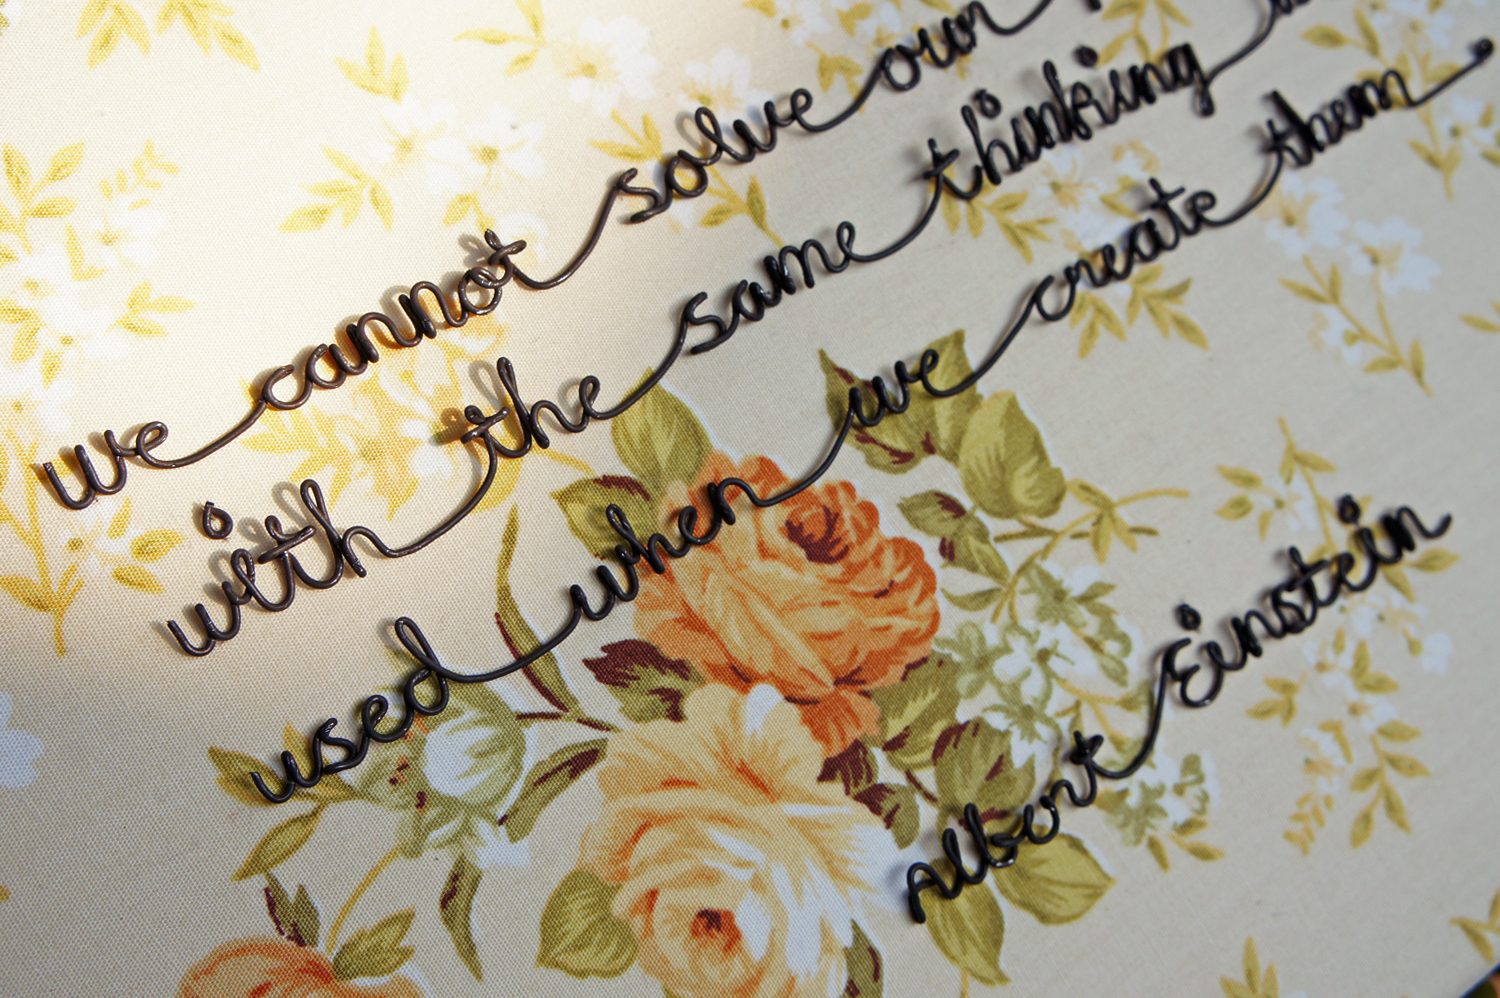 we cannot solve our
with the same thinking
used when we create them
Albert Einstein